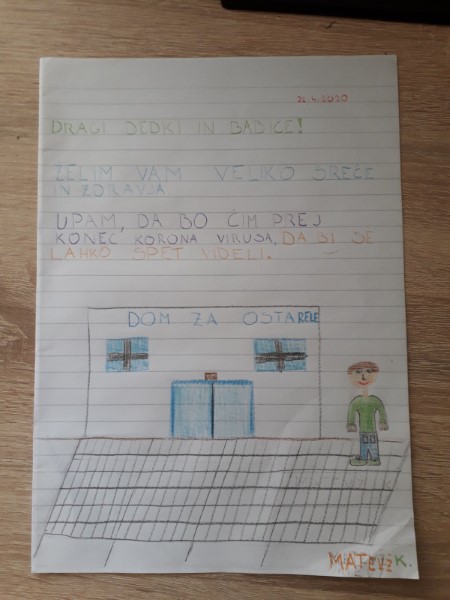 22.4.2020
DRAGI DEDKI IN BABICE!
ŽELIM VAM VELIKO SREČE
IN ZDRAVJA.
UPAM, DA BO ČIM PREJ
KONEC KORONA VIRUSA, DA BI SE
LAHKO SPET VIDELI.
DOM ZA OSTARELE
MATEVŽ K.